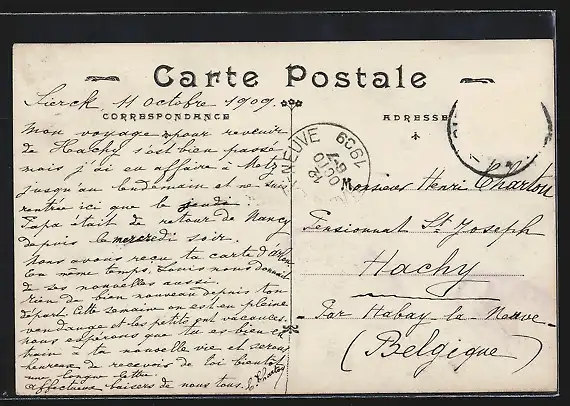 Carte Postale
Sierck, 11 octobre 1909.
CORRESPONDANCE
Mon voyage pour revenir
de Hachy s'est bien passé
mais j'ai eu affaire à Metz
jusqu'au lendemain et ne suis
rentrée ici que le jeudi.
Papa était de retour de Nancy
depuis le mercredi soir.
Nous avons reçu ta carte d'Arlon
en même temps. Louis nous donnait
de ses nouvelles aussi.
Rien de bien nouveau depuis ton
départ. Cette semaine on est en pleine
vendange et les petits ont vacances.
Nous espérons que tu es bien en
train à ta nouvelle vie et serons
heureux de recevoir de toi bientôt
une longue lettre.
Affectueux baisers de nous tous. Charton
ADRESSE
NEUVE
12
OCTO
6-7
1909
Monsieur Henri Charton
Pensionnat St Joseph
Hachy
Par Habay-la-Neuve
(Belgique)